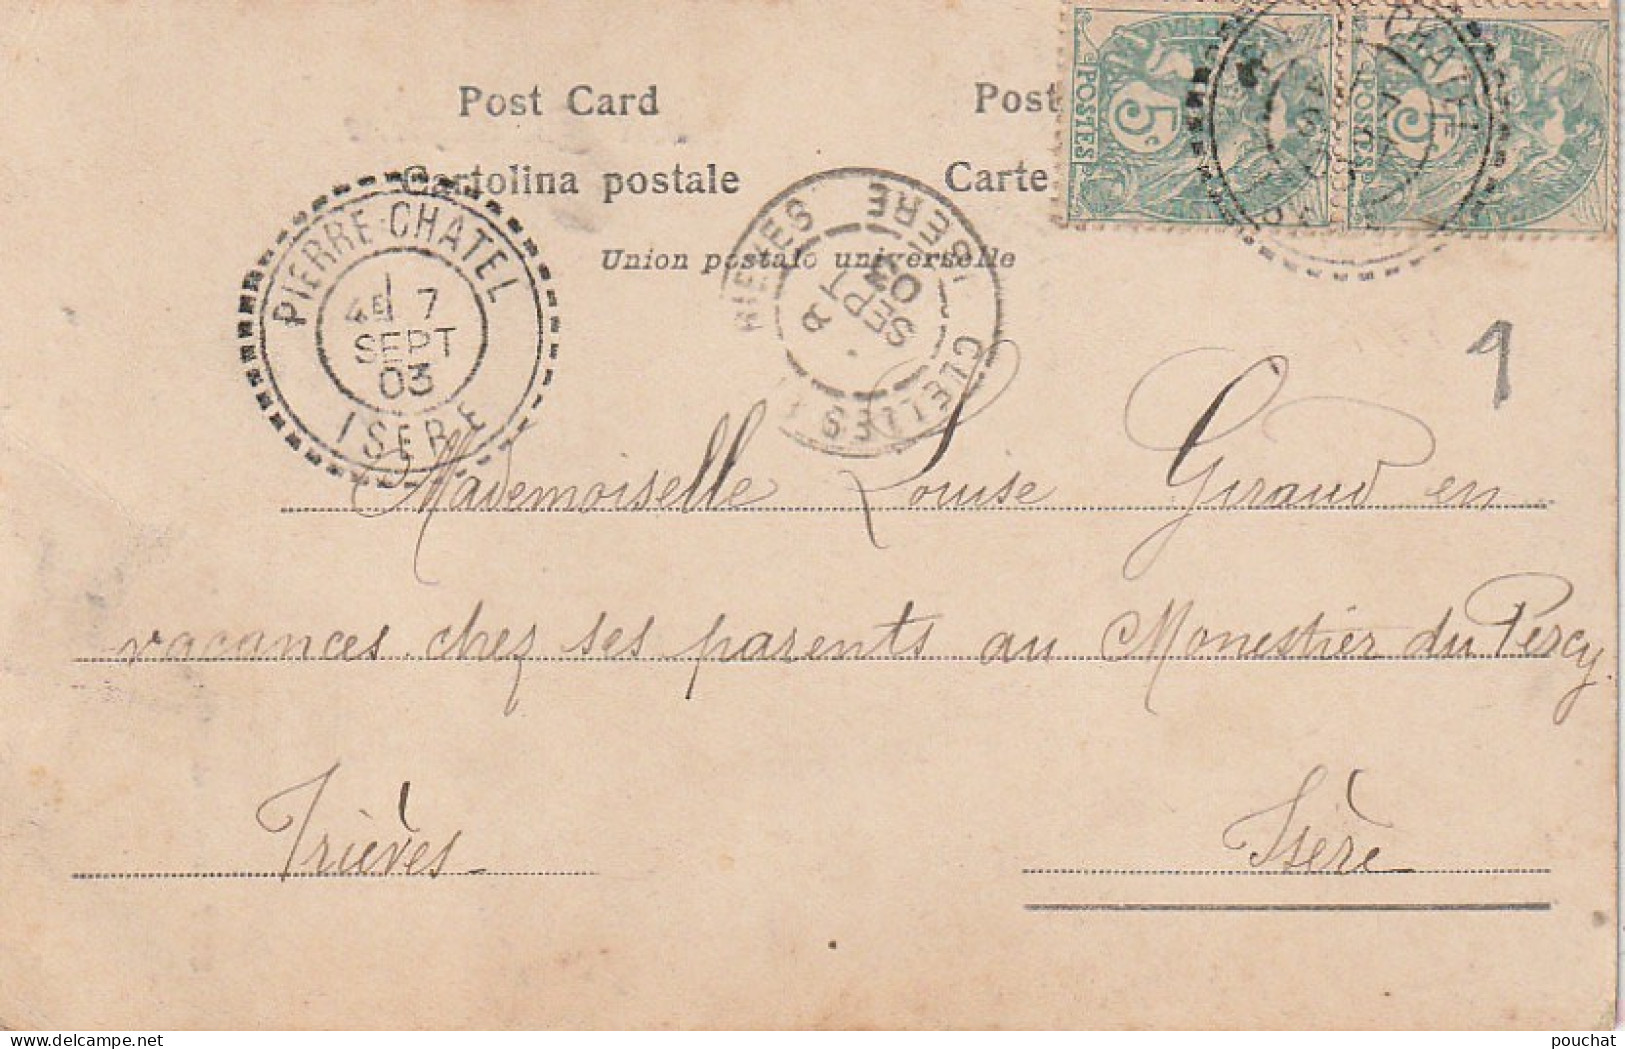 Post Card
Post
Cartolina postale
Carte
Union postale universelle
5c
POSTES
5c
POSTES
CHATEL
PIERRE-CHATEL
4E 7
SEPT
03
ISERE
CLELLES
ISERE
SEPT
03
1
Mademoiselle Louise Giraud en
vacances chez ses parents au Monestier du Percy.
Trièves
Isère
pouchat
delcampe.net